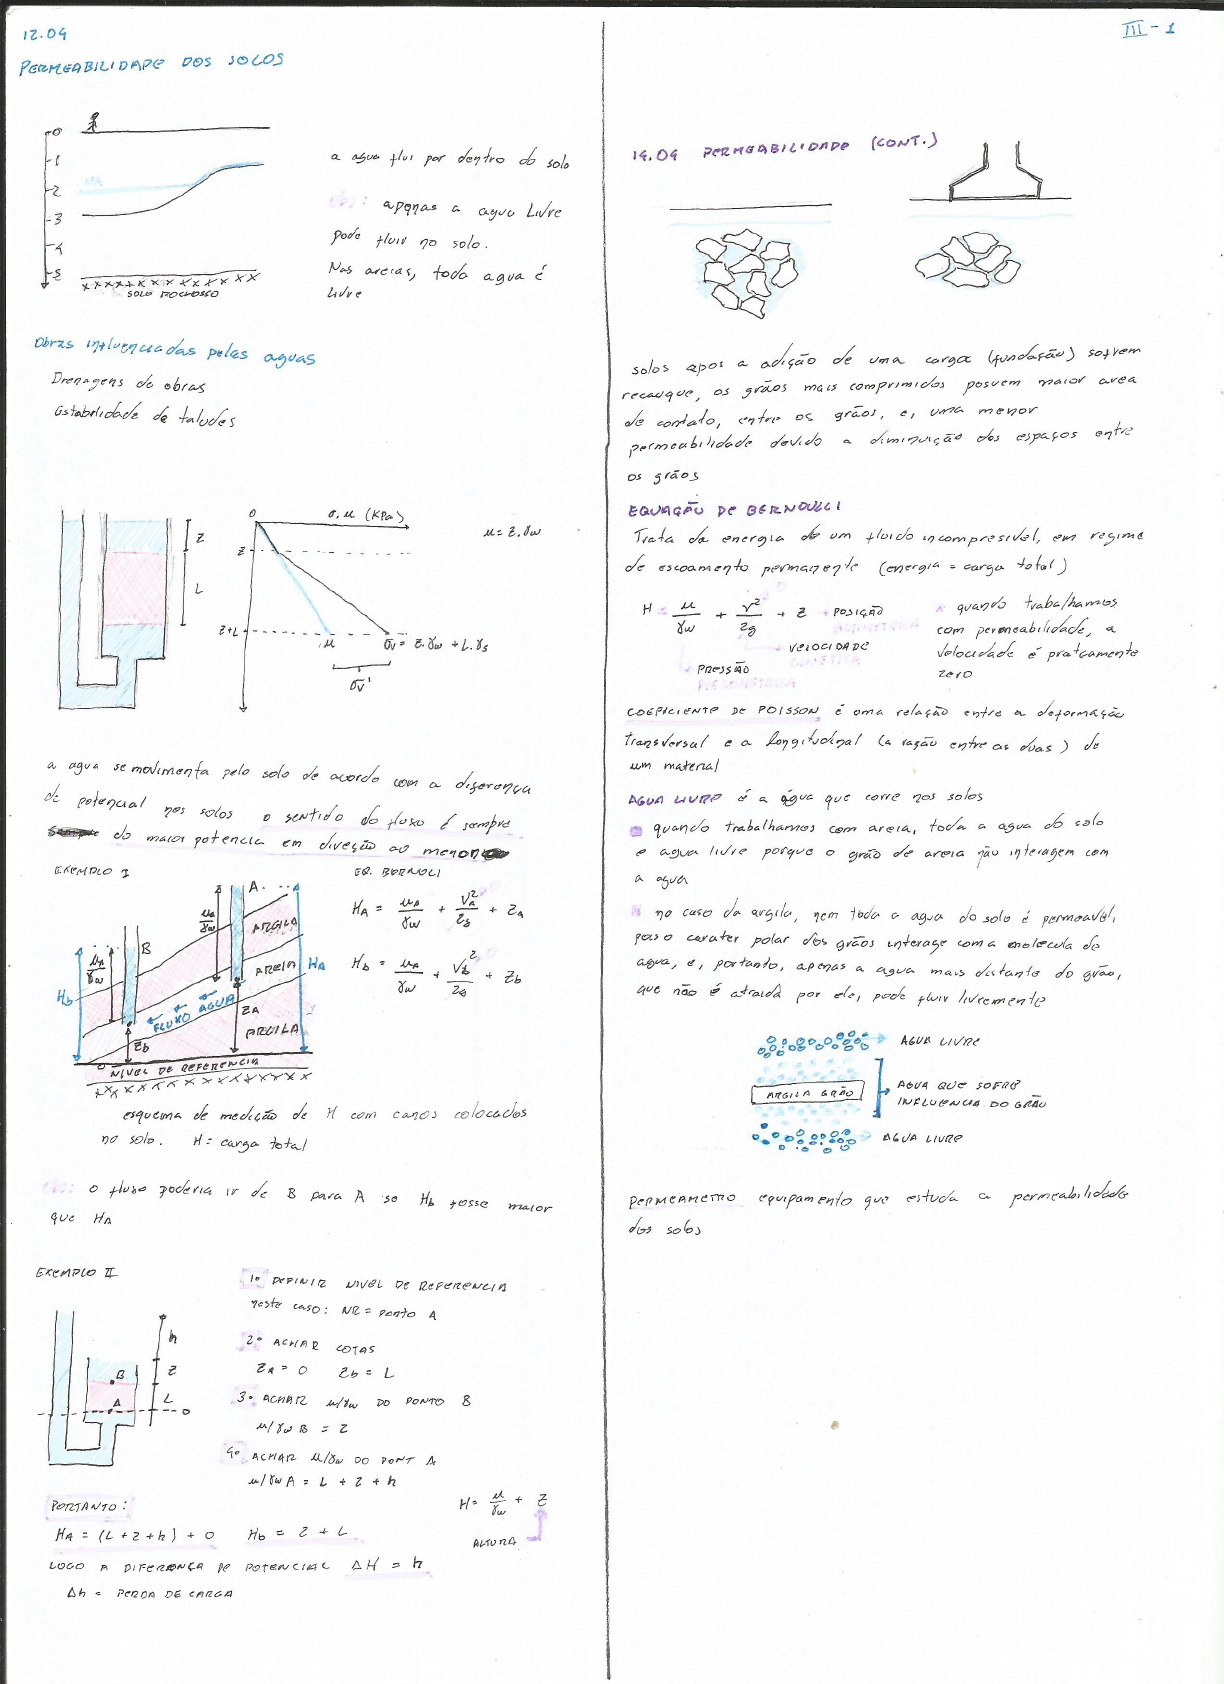 12.04
PERMEABILIDADE DOS SOLOS
0
1
2
3
4
5
NA
SOLO ROCHOSSO
a agua flui por dentro do solo
obs: apenas a agua livre
pode fluir no solo.
Nas areias, toda agua é
livre
Obras influenciadas pelas aguas
Drenagens de obras
Estabilidade de taludes
Z
L
0
σ, μ (KPa)
Z
Z+L
μ
σv = Z.γw + L.γs
σv'
μ = Z.γw
a agua se movimenta pelo solo de acordo com a diferença
de potencial nos solos o sentido do fluxo é sempre
do maior potencia em diveção ao menor
EXEMPLO I
EQ. BERNOLI
A
B
μA/γw
μA/γw
ARGILA
AREIA
HA
Hb
FLUXO AGUA
ZA
Zb
ARGILA
NIVEL DE REFERENCIA
HA = μA/γw + VA²/2g + ZA
Hb = μA/γw + Vb²/2g + Zb
esquema de medição de H com canos colocados
no solo. H = carga total
obs: o fluxo poderia ir de B para A se Hb fosse maior
que HA
EXEMPLO II
h
Z
L
B
A
0
1º DEFINIR NIVEL DE REFERENCIA
neste caso: NR = ponto A
2º ACHAR COTAS
ZA = 0 Zb = L
3º ACHAR μ/γw DO PONTO B
μ/γw B = Z
4º ACHAR μ/γw DO PONT A
μ/γw A = L + Z + h
PORTANTO:
HA = (L + Z + h) + 0 Hb = Z + L
H = μ/γw + Z
ALTURA
LOGO A DIFERENÇA DE POTENCIAL ΔH = h
Δh = PERDA DE CARGA
III - 1
14.04 PERMEABILIDADE (CONT.)
solos apos a adição de uma carga (fundação) sofrem
recauque, os grãos mais comprimidos possuem maior area
de contato, entre os grãos, e, uma menor
permeabilidade devido a diminuição dos espaços entre
os grãos
EQUAÇÃO DE BERNOULLI
Trata da energia de um fluido incompresivel, em regime
de escoamento permanente (energia = carga total)
H = μ/γw + v²/2g + Z
POSIÇÃO
ALTIMETRICA
VELOCIDADE
CINETICA
PRESSÃO
PIEZOMETRICA
* quando trabalhamos
com permeabilidade, a
velocidade é pratcamente
zero
COEFICIENTE DE POISSON é uma relação entre a deformação
transversal e a longitudinal (a razão entre as duas) de
um material
AGUA LIVRE é a água que corre nos solos
quando trabalhamos com areia, toda a agua do solo
e agua livre porque o grão de areia não interagem com
a agua
no caso da argila, nem toda a agua do solo é permeavel,
pois o carater polar dos grãos interage com a molecula de
agua, e, portanto, apenas a agua mais distante do grão,
que não é atraida por ele, pode fluir livremente
AGUA LIVRE
ARGILA GRÃO
AGUA QUE SOFRE
INFLUENCIA DO GRÃO
AGUA LIVRE
PERMEAMETRO equipamento que estuda a permeabilidade
dos solos